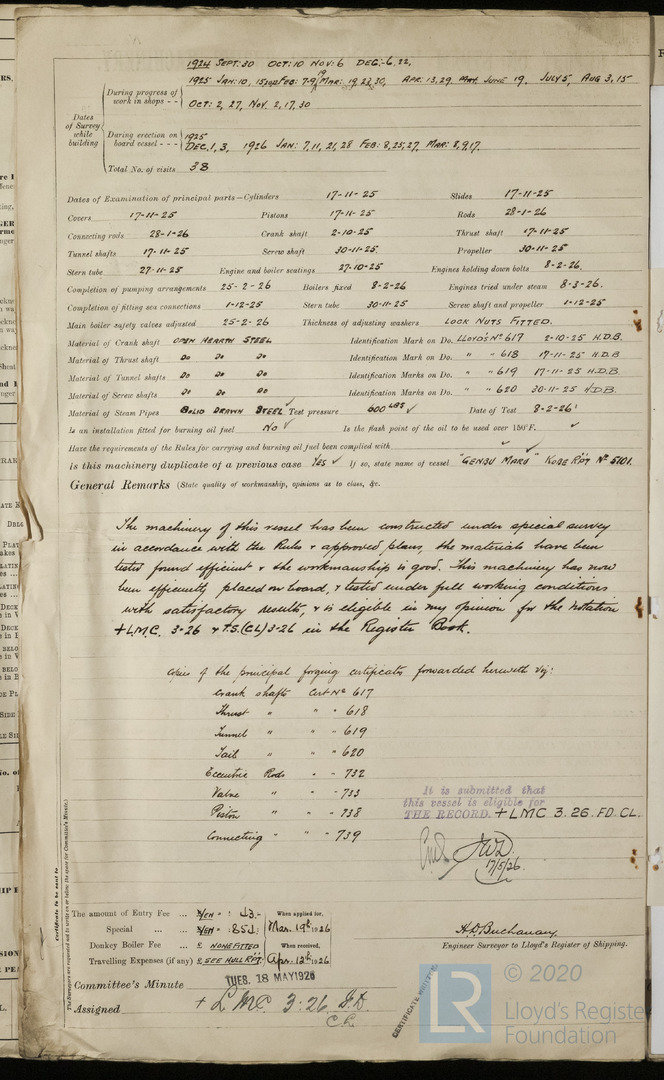 1924 SEPT: 30 OCT: 10 NOV: 6 DEC:-6, 22,
1925 JAN: 10, FEB: 7-9 MAR: 19, 23, 30, APR: 13, 29, JUNE 19, JULY 5, AUG 3, 15
During progress of work in shops - -
OCT: 2, 27, NOV 2, 17, 30
Dates of Survey while building
During erection on board vessel - - -
1925
DEC. 1, 3, 1926 JAN: 7, 11, 21, 28 FEB: 8, 25, 27, MAR: 8, 9, 17.
Total No. of visits 38
Dates of Examination of principal parts—Cylinders 17-11-25 Slides 17-11-25
Covers 17-11-25 Pistons 17-11-25 Rods 28-1-26
Connecting rods 28-1-26 Crank shaft 2-10-25 Thrust shaft 17-11-25
Tunnel shafts 17-11-25 Screw shaft 30-11-25 Propeller 30-11-25
Stern tube 27-11-25 Engine and boiler seatings 27-10-25 Engines holding down bolts 8-2-26
Completion of pumping arrangements 25-2-26 Boilers fixed 8-2-26 Engines tried under steam 8-3-26.
Completion of fitting sea connections 1-12-25 Stern tube 30-11-25 Screw shaft and propeller 1-12-25
Main boiler safety valves adjusted 25-2-26 Thickness of adjusting washers LOCK NUTS FITTED.
Material of Crank shaft OPEN HEARTH STEEL Identification Mark on Do. LLOYD'S No 617 2-10-25 H.D.B.
Material of Thrust shaft Do Do Do Identification Mark on Do. " " 618 17-11-25 H.D.B
Material of Tunnel shafts Do Do Do Identification Marks on Do. " " 619 17-11-25 H.D.B.
Material of Screw shafts Do Do Do Identification Marks on Do. " " 620 30-11-25 H.D.B.
Material of Steam Pipes SOLID DRAWN STEEL ✓ Test pressure 600 LBS ✓ Date of Test 8-2-26
Is an installation fitted for burning oil fuel No ✓ Is the flash point of the oil to be used over 150°F. ✓
Have the requirements of the Rules for carrying and burning oil fuel been complied with ✓ ✓
Is this machinery duplicate of a previous case YES ✓ If so, state name of vessel "GENBU MARU" KOBE RPT No 5101.
General Remarks (State quality of workmanship, opinions as to class, &c.
The machinery of this vessel has been constructed under special survey
in accordance with the Rules & approved plans, the materials have been
tested found efficient & the workmanship is good. This machinery has now
been efficiently placed on board, & tested under full working conditions
with satisfactory results, & is eligible in my opinion for the notation
+LMC. 3-26 & T.S.(CL) 3-26 in the Register Book.
Copies of the principal forging certificates forwarded herewith viz:
Crank shafts Cert No 617
Thrust " " " 618
Tunnel " " " 619
Tail " " " 620
Eccentric Rods " - 732
Valve " " - 733
Piston " " " 738
Connecting " " " 739
It is submitted that
this vessel is eligible for
THE RECORD. + LMC 3.26. FD. CL.
17/5/26.
The amount of Entry Fee ... YEN : 43.- When applied for,
Special ... YEN : 851: Mar. 19th 1926
Donkey Boiler Fee ... £ NONE FITTED When received,
Travelling Expenses (if any) £ SEE HULL RPT. Apr. 12th 1926
H.D. Buchanan
Engineer Surveyor to Lloyd's Register of Shipping.
Committee's Minute TUES. 18 MAY 1926
Assigned + L MC 3:26 F.D.
C.L.
Certificate to be sent to
(The Surveyors are requested not to write on or below the space for Committee's Minute.)
LR © 2020
Lloyd's Register
Foundation